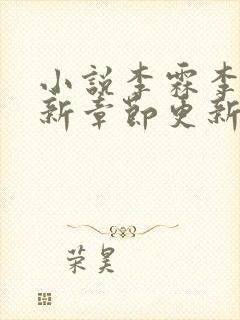 小说李霖李
新章节更新
荣昊